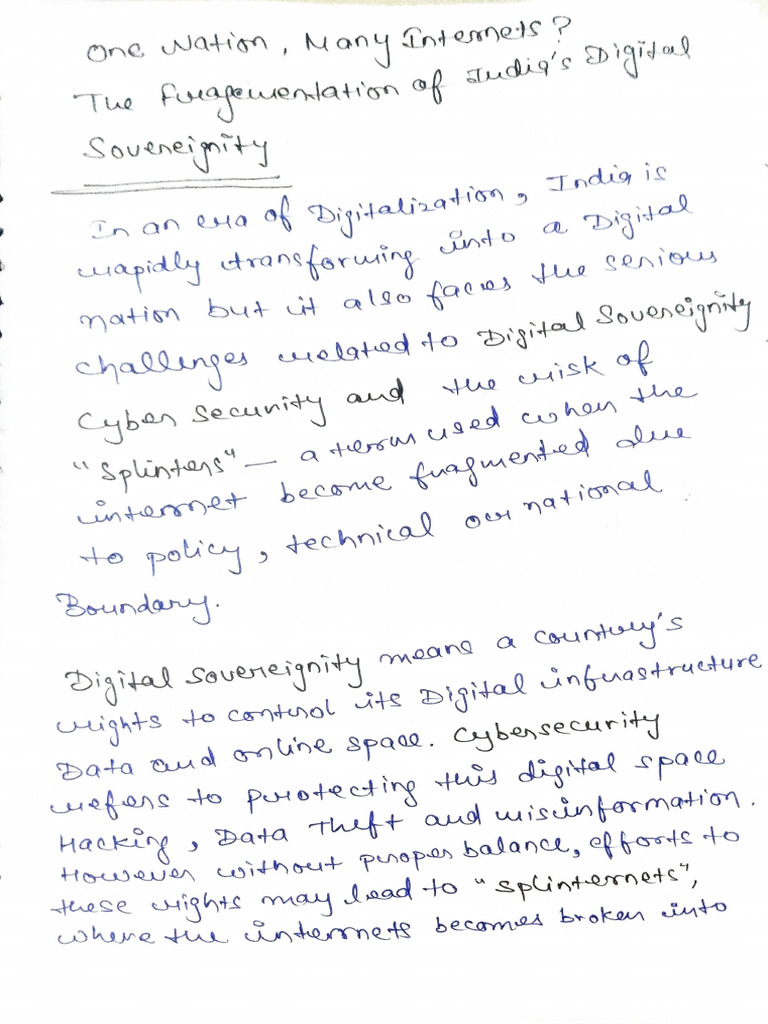 One Nation, Many Internets?
The Fragementation of India's Digital
Sovereignity
In an era of Digitalization, India is
rapidly transforming into a Digital
nation but it also faces the serious
challenges related to Digital Sovereignity
Cyber Security and the risk of
"Splinters" — a term used when the
internet become fragmented due
to policy, technical or national
Boundary.
Digital Sovereignity means a country's
rights to control its Digital infrastructure
Data and online space. Cybersecurity
refers to protecting this digital space
Hacking, Data Theft and misinformation.
However without proper balance, efforts to
these rights may lead to "splinternets",
where the internets becomes broken into